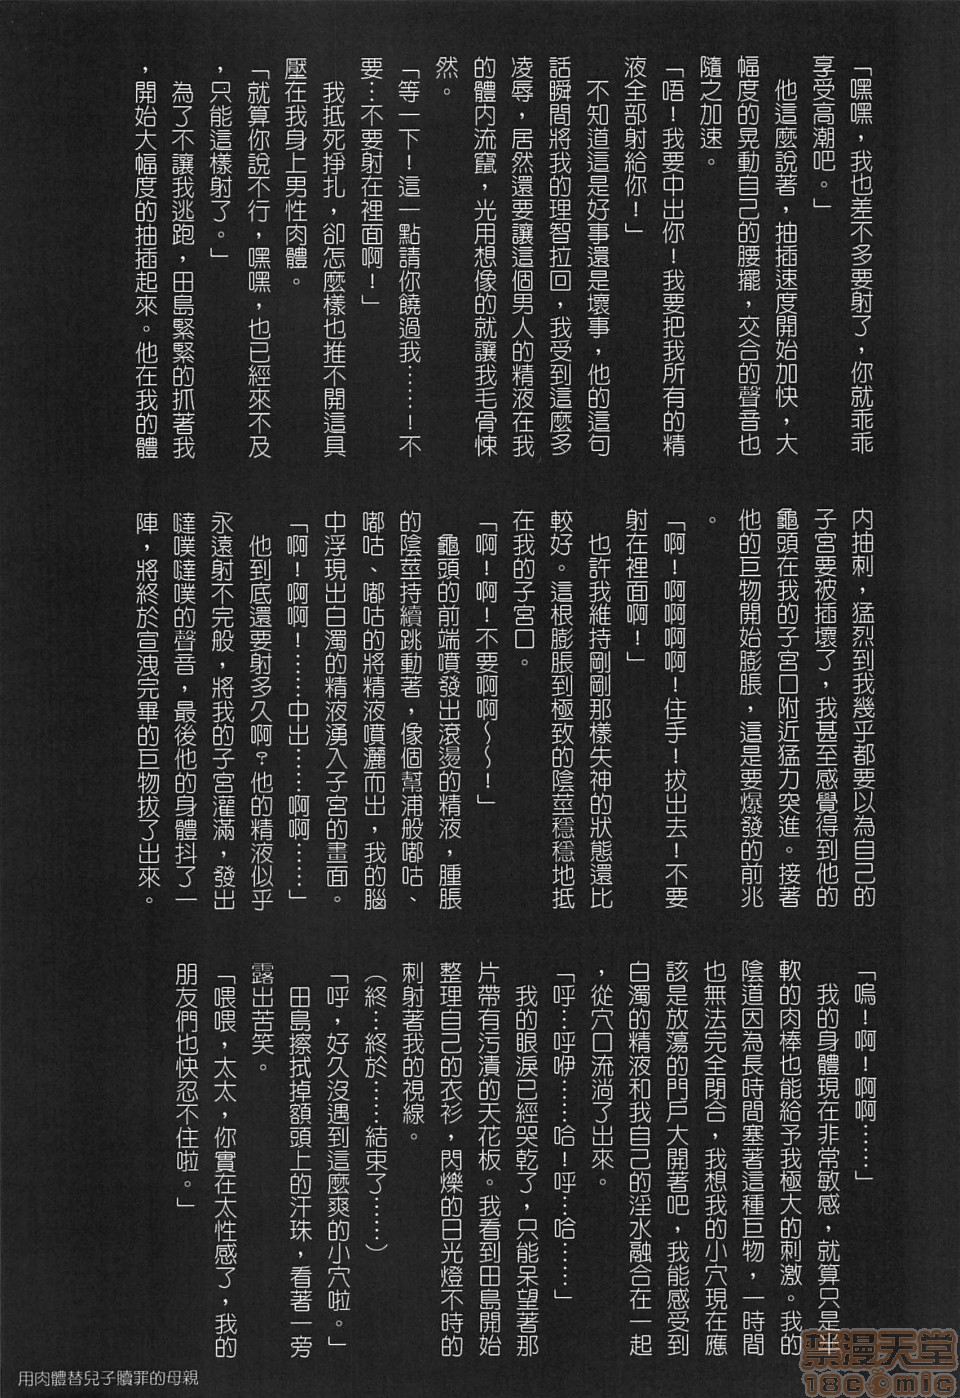 「嘿嘿，我也差不多要射了，你就乖乖
享受高潮吧。」
他這麼說著，抽插速度開始加快，大
幅度的晃動自己的腰擺，交合的聲音也
隨之加速。
「唔！我要中出你！我要把我所有的精
液全部射給你！」
不知道這是好事還是壞事，他的這句
話瞬間將我的理智拉回，我受到這麼多
凌辱，居然還要讓這個男人的精液在我
的體內流竄，光用想像的就讓我毛骨悚
然。
「等一下！這一點請你饒過我……！不
要…不要射在裡面啊！」
我抵死掙扎，卻怎麼樣也推不開這具
壓在我身上男性肉體。
「就算你說不行，嘿嘿，也已經來不及
，只能這樣射了。」
為了不讓我逃跑，田島緊緊的抓著我
，開始大幅度的抽插起來。他在我的體
內抽刺，猛烈到我幾乎都要以為自己的
子宮要被插壞了，我甚至感覺得到他的
龜頭在我的子宮口附近猛力突進。接著
他的巨物開始膨脹，這是要爆發的前兆
。
「啊！啊啊啊啊！住手！拔出去！不要
射在裡面啊！」
也許我維持剛剛那樣失神的狀態還比
較好。這根膨脹到極致的陰莖穩穩地抵
在我的子宮口。
「啊！啊！不要啊啊～～！」
龜頭的前端噴發出滾燙的精液，腫脹
的陰莖持續跳動著，像個幫浦般嘟咕、
嘟咕、嘟咕的將精液噴灑而出，我的腦
中浮現出白濁的精液湧入子宮的畫面。
「啊！啊啊！……中出……啊啊……」
他到底還要射多久啊？他的精液似乎
永遠射不完般，將我的子宮灌滿，發出
噠噗噠噗的聲音，最後他的身體抖了一
陣，將終於宣洩完畢的巨物拔了出來。
「嗚！啊！啊啊……」
我的身體現在非常敏感，就算只是半
軟的肉棒也能給予我極大的刺激。我的
陰道因為長時間塞著這種巨物，一時間
也無法完全閉合，我想我的小穴現在應
該是放蕩的門戶大開著吧，我能感受到
白濁的精液和我自己的淫水融合在一起
，從穴口流淌了出來。
「呼…呼咿……哈！呼…哈……」
我的眼淚已經哭乾了，只能呆望著那
片帶有污漬的天花板。我看到田島開始
整理自己的衣衫，閃爍的日光燈不時的
刺射著我的視線。
（終…終於……結束了……）
「呼，好久沒遇到這麼爽的小穴啦。」
田島擦拭掉額頭上的汗珠，看著一旁
露出苦笑。
「喂喂，太太，你實在太性感了，我的
朋友們也快忍不住啦。」
用肉體替兒子贖罪的母親
禁漫天堂
18comic